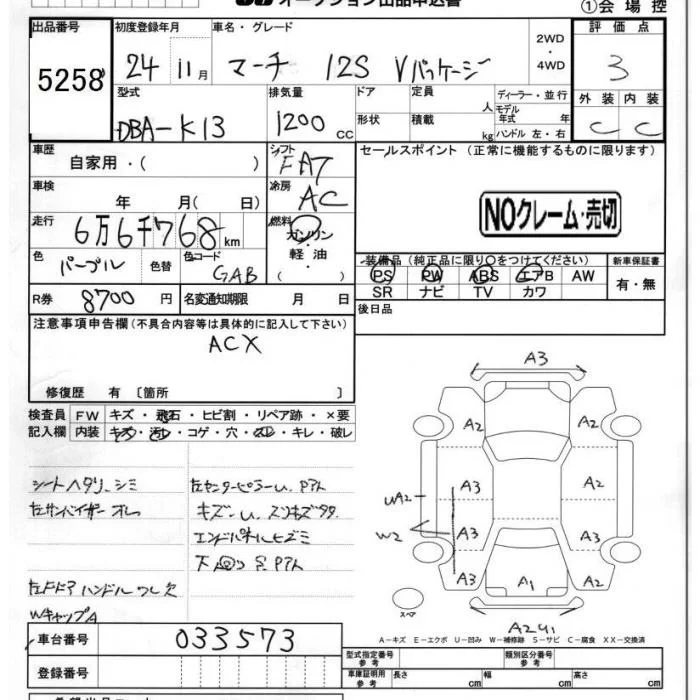 オークション出品申込書
①会場控
出品番号 初度登録年月 車名・グレード 評価点
5258 24 11月 マーチ 12S Vパッケージ 2WD・4WD 3
型式 排気量 ドア 定員 人 ディーラー・並行 外装 内装
DBA-K13 1200cc 形状 積載 kg モデル年式 年 ハンドル 左・右 C C
車歴 シフト セールスポイント (正常に機能するものに限ります)
自家用・( ) FAT
車検 冷房
年 月( 日) AC
NOクレーム・売切
走行 燃料
6万6千768km ガソリン・軽油・( )
色 色替 色コード
パープル GAB
装備品(純正品に限り○をつけてください) 新車保証書
PS PW ABS エアB AW 有・無
SR ナビ TV カワ
R券 8700円 名変通知期限 月 日
後日品
注意事項申告欄(不具合内容等は具体的に記入して下さい)
ACX
修復歴 有 〔箇所 〕
検査員 FW キズ・飛石・ヒビ割・リペア跡・×要
記入欄 内装 キズ・汚レ・コゲ・穴・スレ・キレ・破レ
シートヘタリ、シミ
左サンバイザーオレ
ドアハンドルワレ欠
WキャップA
左センターピラーU、Pアト
キズ-U、スリキズ多
エンドパネルヒズミ
下回り P.アト
A3
A2 A2
A3 A2
UA2
W2
A3 A3
A3 A1 A2
スペア
A2U1
A-キズ E-エクボ U-凹み W-補修跡 S-サビ C-腐食 XX-交換済
車台番号 033573
型式指定番号 参考 類別区分番号 参考
登録番号
車庫証明用 参考 長さ cm 幅 cm 高さ cm